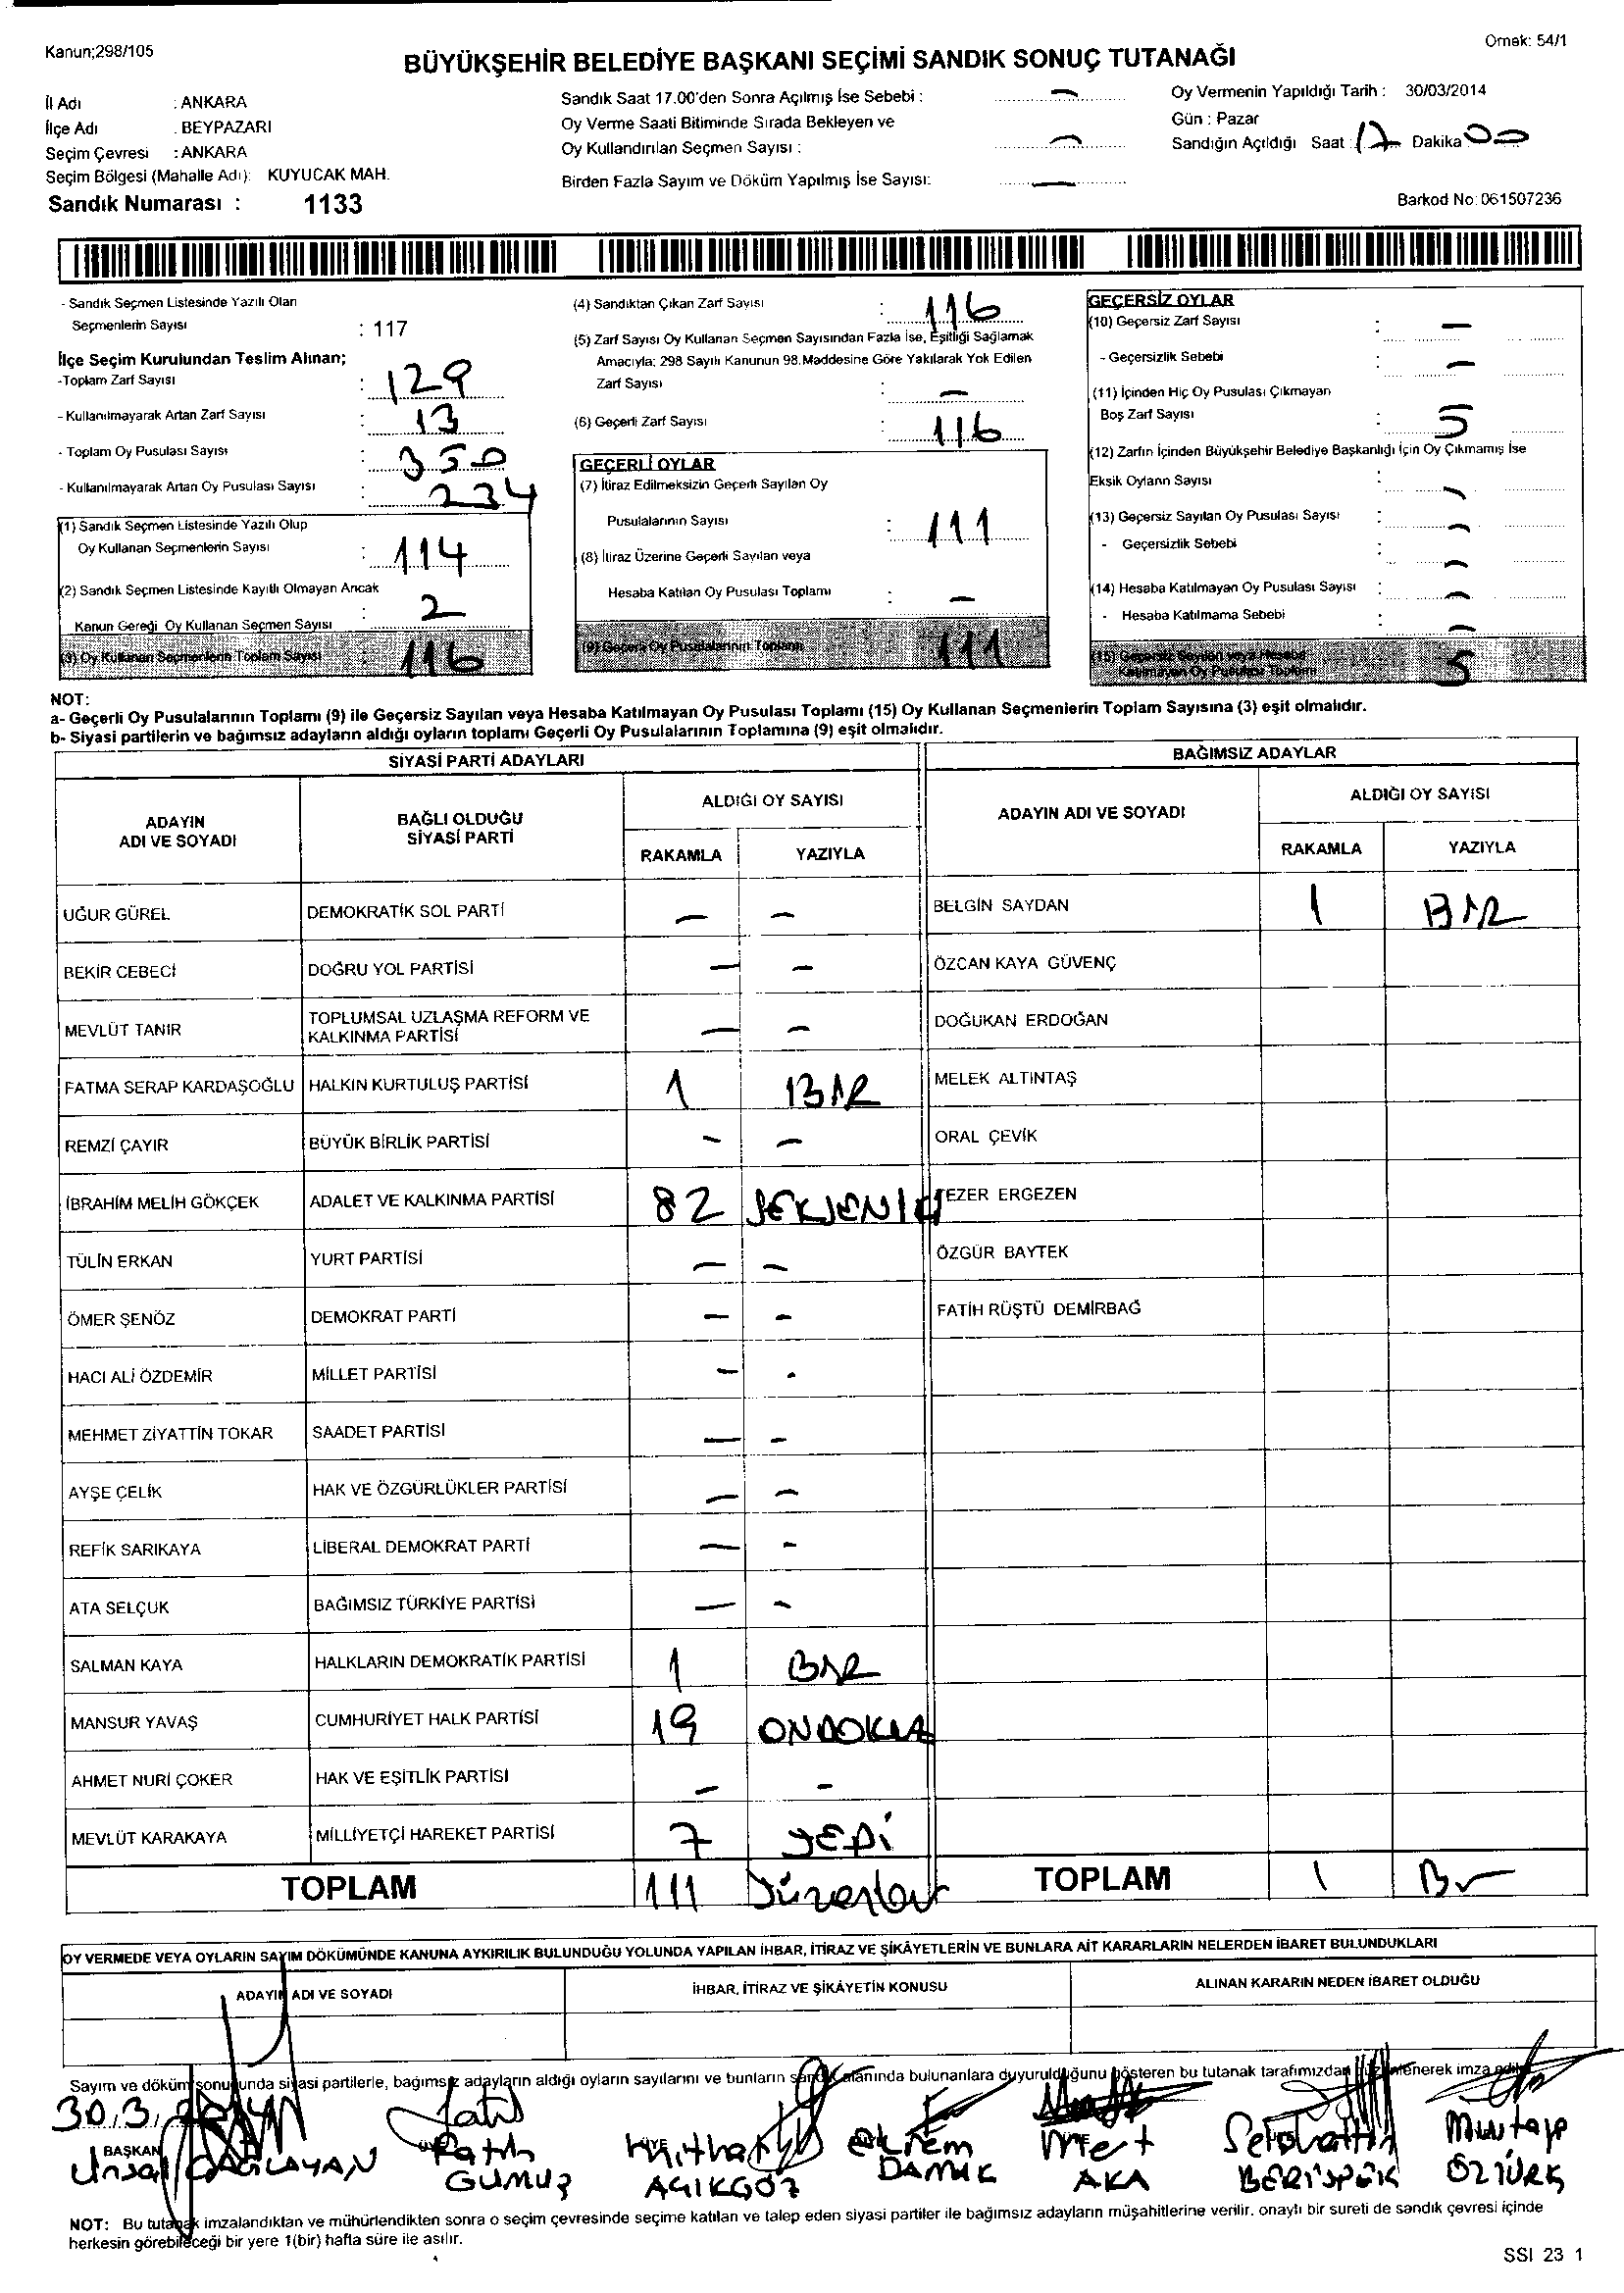 Kanun;298/105
Örnek: 54/1
BÜYÜKŞEHİR BELEDİYE BAŞKANI SEÇİMİ SANDIK SONUÇ TUTANAĞI
İl Adı : ANKARA
İlçe Adı . BEYPAZARI
Seçim Çevresi : ANKARA
Seçim Bölgesi (Mahalle Adı): KUYUCAK MAH.
Sandık Numarası : 1133
Sandık Saat 17.00'den Sonra Açılmış İse Sebebi : —
Oy Verme Saati Bitiminde Sırada Bekleyen ve
Oy Kullandırılan Seçmen Sayısı : —
Birden Fazla Sayım ve Döküm Yapılmış İse Sayısı: —
Oy Vermenin Yapıldığı Tarih : 30/03/2014
Gün : Pazar
Sandığın Açıldığı Saat : 17 Dakika 00
Barkod No: 061507236
- Sandık Seçmen Listesinde Yazılı Olan
Seçmenlerin Sayısı : 117
İlçe Seçim Kurulundan Teslim Alınan;
-Toplam Zarf Sayısı : 129
- Kullanılmayarak Artan Zarf Sayısı : 13
- Toplam Oy Pusulası Sayısı : 350
- Kullanılmayarak Artan Oy Pusulası Sayısı : 234
(1) Sandık Seçmen Listesinde Yazılı Olup
Oy Kullanan Seçmenlerin Sayısı : 114
(2) Sandık Seçmen Listesinde Kayıtlı Olmayan Ancak
Kanun Gereği Oy Kullanan Seçmen Sayısı : 2
(3) Oy Kullanan Seçmenlerin Toplam Sayısı : 116
(4) Sandıktan Çıkan Zarf Sayısı : 116
(5) Zarf Sayısı Oy Kullanan Seçmen Sayısından Fazla İse, Eşitliği Sağlamak
Amacıyla; 298 Sayılı Kanunun 98.Maddesine Göre Yakılarak Yok Edilen
Zarf Sayısı : —
(6) Geçerli Zarf Sayısı : 116
GEÇERLİ OYLAR
(7) İtiraz Edilmeksizin Geçerli Sayılan Oy
Pusulalarının Sayısı : 111
(8) İtiraz Üzerine Geçerli Sayılan veya
Hesaba Katılan Oy Pusulası Toplamı : —
(9) Geçerli Oy Pusulalarının Toplamı 111
GEÇERSİZ OYLAR
(10) Geçersiz Zarf Sayısı : —
- Geçersizlik Sebebi : —
(11) İçinden Hiç Oy Pusulası Çıkmayan
Boş Zarf Sayısı : 5
(12) Zarfın İçinden Büyükşehir Belediye Başkanlığı İçin Oy Çıkmamış İse
Eksik Oyların Sayısı : —
(13) Geçersiz Sayılan Oy Pusulası Sayısı : —
- Geçersizlik Sebebi : —
(14) Hesaba Katılmayan Oy Pusulası Sayısı : —
- Hesaba Katılmama Sebebi : —
(15) Geçersiz Sayılan veya Hesaba
Katılmayan Oy Pusulası Toplamı 5
NOT:
a- Geçerli Oy Pusulalarının Toplamı (9) ile Geçersiz Sayılan veya Hesaba Katılmayan Oy Pusulası Toplamı (15) Oy Kullanan Seçmenlerin Toplam Sayısına (3) eşit olmalıdır.
b- Siyasi partilerin ve bağımsız adayların aldığı oyların toplamı Geçerli Oy Pusulalarının Toplamına (9) eşit olmalıdır.
SİYASİ PARTİ ADAYLARI
ADAYIN ADI VE SOYADI | BAĞLI OLDUĞU SİYASİ PARTİ | ALDIĞI OY SAYISI | RAKAMLA | YAZIYLA
UĞUR GÜREL DEMOKRATİK SOL PARTİ — —
BEKİR CEBECİ DOĞRU YOL PARTİSİ — —
MEVLÜT TANIR TOPLUMSAL UZLAŞMA REFORM VE KALKINMA PARTİSİ — —
FATMA SERAP KARDAŞOĞLU HALKIN KURTULUŞ PARTİSİ 1 BİR
REMZİ ÇAYIR BÜYÜK BİRLİK PARTİSİ — —
İBRAHİM MELİH GÖKÇEK ADALET VE KALKINMA PARTİSİ 82 SEKSENİKİ
TÜLİN ERKAN YURT PARTİSİ — —
ÖMER ŞENÖZ DEMOKRAT PARTİ — —
HACI ALİ ÖZDEMİR MİLLET PARTİSİ — -
MEHMET ZİYATTİN TOKAR SAADET PARTİSİ — —
AYŞE ÇELİK HAK VE ÖZGÜRLÜKLER PARTİSİ — —
REFİK SARIKAYA LİBERAL DEMOKRAT PARTİ — —
ATA SELÇUK BAĞIMSIZ TÜRKİYE PARTİSİ — —
SALMAN KAYA HALKLARIN DEMOKRATİK PARTİSİ 1 BİR
MANSUR YAVAŞ CUMHURİYET HALK PARTİSİ 19 ONDOKUZ
AHMET NURİ ÇOKER HAK VE EŞİTLİK PARTİSİ — —
MEVLÜT KARAKAYA MİLLİYETÇİ HAREKET PARTİSİ 7 YEDİ
TOPLAM 111
BAĞIMSIZ ADAYLAR
ADAYIN ADI VE SOYADI | ALDIĞI OY SAYISI | RAKAMLA | YAZIYLA
BELGİN SAYDAN 1 BİR
ÖZCAN KAYA GÜVENÇ
DOĞUKAN ERDOĞAN
MELEK ALTINTAŞ
ORAL ÇEVİK
EZER ERGEZEN
ÖZGÜR BAYTEK
FATİH RÜŞTÜ DEMİRBAĞ
TOPLAM 1 Bir
OY VERMEDE VEYA OYLARIN SAYIM DÖKÜMÜNDE KANUNA AYKIRILIK BULUNDUĞU YOLUNDA YAPILAN İHBAR, İTİRAZ VE ŞİKÂYETLERİN VE BUNLARA AİT KARARLARIN NELERDEN İBARET BULUNDUKLARI
ADAYIN ADI VE SOYADI | İHBAR, İTİRAZ VE ŞİKÂYETİN KONUSU | ALINAN KARARIN NEDEN İBARET OLDUĞU
Sayım ve döküm sonucunda siyasi partilerle, bağımsız adayların aldığı oyların sayılarını ve bunların sandık alanında bulunanlara duyurulduğunu gösteren bu tutanak tarafımızdan düzenlenerek imza edildi.
30.3.2014
BAŞKAN
Ünsal ÇAĞLAYAN
Fatih GÜMÜŞ
Mithat AÇIKGÖZ
Ekrem DAMAK
Mert AKA
Selahattin
ÖZTÜRK
NOT: Bu tutanak imzalandıktan ve mühürlendikten sonra o seçim çevresinde seçime katılan ve talep eden siyasi partiler ile bağımsız adayların müşahitlerine verilir. onaylı bir sureti de sandık çevresi içinde
herkesin görebileceği bir yere 1(bir) hafta süre ile asılır.
SSI 23 1